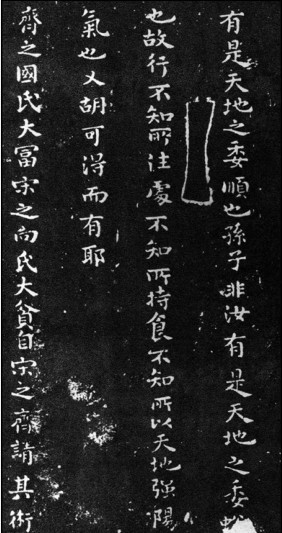 有是天地之委順也孫子非汝有是天地之委蛻
也故行不知所往處不知所持食不知所以天地强陽
氣也又胡可得而有耶
齊之國氏大富宋之向氏大貧自宋之齊請其術